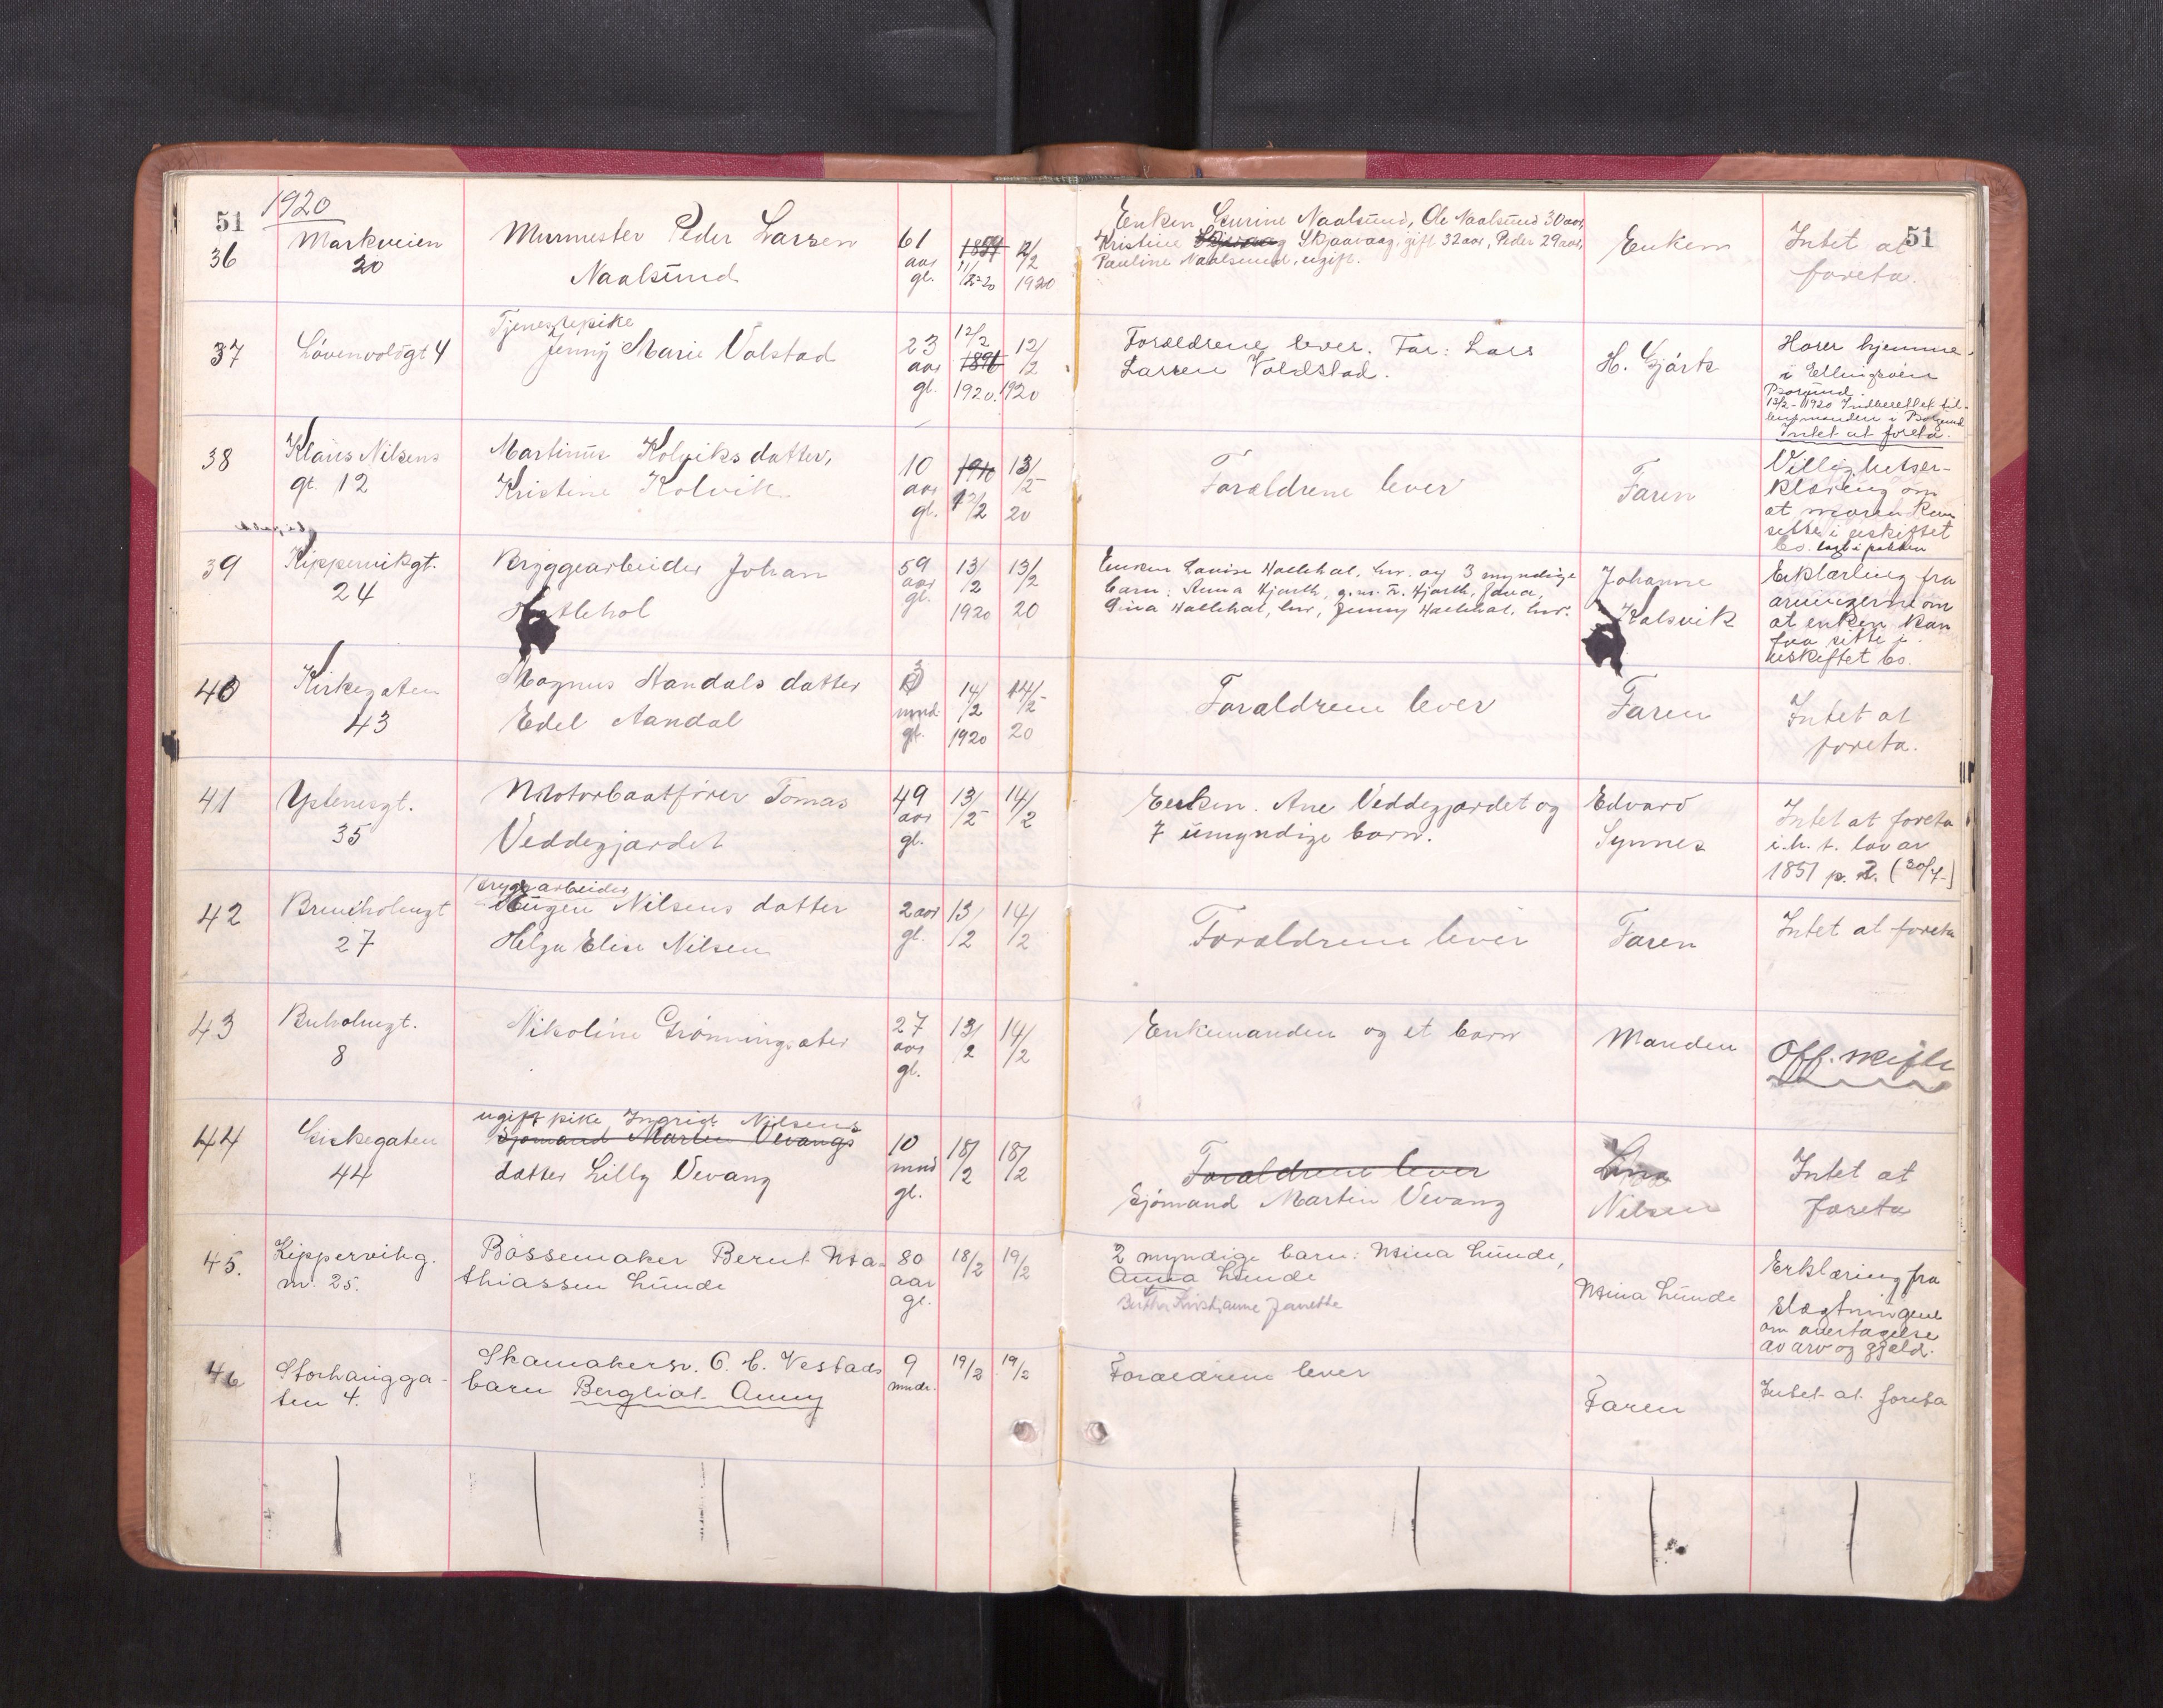 51
1920
51
36
Markveien
20
Murmester Peder Larsen
Naalsund
61
aar
gl.
11/2-20
12/2
1920
Enken Gurine Naalsund, Ole Naalsund 30 aar,
Kristine Skjaavaag, gift 32 aar, Peder 29 aar,
Pauline Naalsund, ugift.
Enken
Intet at
foreta.
37
Lövenvoldgt 4
Tjenestepike
Jenny Marie Valstad
23
aar
gl.
12/2
1920.
12/2
1920
Forældrene lever. Far: Lars
Larsen Voldstad.
H. Gjørts
Hører hjemme
i Ellingsøen
Borgund.
13/2-1920 Indberettet til
lensmanden i Borgund
Intet at foreta.
38
Klaus Nilsens
gt. 12
Martinus Kolviks datter,
Kristine Kolvik
10
aar
gl.
12/2
13/2
20
Forældrene lever
Faren
Villighetser-
klæring om
at moren kan
sitte i uskiftet
bo. lagt i pakken
39
Kippervikgt.
24
Bryggearbeider Johan
Hatlehol
59
aar
gl.
13/2
1920
13/2
20
Enken Lovise Hatlehol, her. og 3 myndige
barn: Anna Hjorth, g.m. Fr. Hjorth,
Gina Hatlehol, her, Jenny Hatlehol, her.
Johanne
Kalsvik
Erklæring fra
arvingerne om
at enken kan
faa sitte i
uskiftet bo.
40
Kirkegaten
43
Magnus Aandals datter
Edel Aandal
3
mnd.
gl.
14/2
1920
14/2
20
Forældrene lever
Faren
Intet at
foreta.
41
Ystenesgt.
35
Motorbaatfører Tomas
Veddegjærdet
49
aar
gl.
13/2
14/2
Enken. Ane Veddegjærdet og
7 umyndige barn.
Edvard
Synnes
Intet at foreta
i.h. t. lov av
1851 p. 2. (30/7-)
42
Brunholmgt
27
bryggearbeider
Eugen Nilsens datter
Helga Elise Nilsen
2 aar
gl.
13/2
14/2
Forældrene lever
Faren
Intet at foreta
43
Buholmgt.
8
Nikoline Grønningsæter
27
aar
gl.
13/2
14/2
Enkemanden og et barn
Manden
Off. skifte
44
Kirkegaten
44
ugift pike Ingrid Nilsens
Sjömand Martin Vevangs
datter Lilly Vevang
10
mnd
gl.
18/2
18/2
Forældrene lever
Sjömand Martin Vevang
Lina
Nilsen
Intet at
foreta
45.
Kippervikg.
nr. 25.
Bössemaker Bernt Ma-
thiassen Lunde
80
aar
gl.
18/2
19/2
2 myndige barn: Mina Lunde,
Anna Lunde
Berthe Kristianne Janette
Mina Lunde
Erklæring fra
slægtningene
om overtagelse
av arv og gjæld.
46
Storhaugga-
ten 4.
Skomakersv. O. C. Vestads
barn Bergliot Anny
9
mndr.
19/2
19/2
Forældrene lever
Faren
Intet at foreta